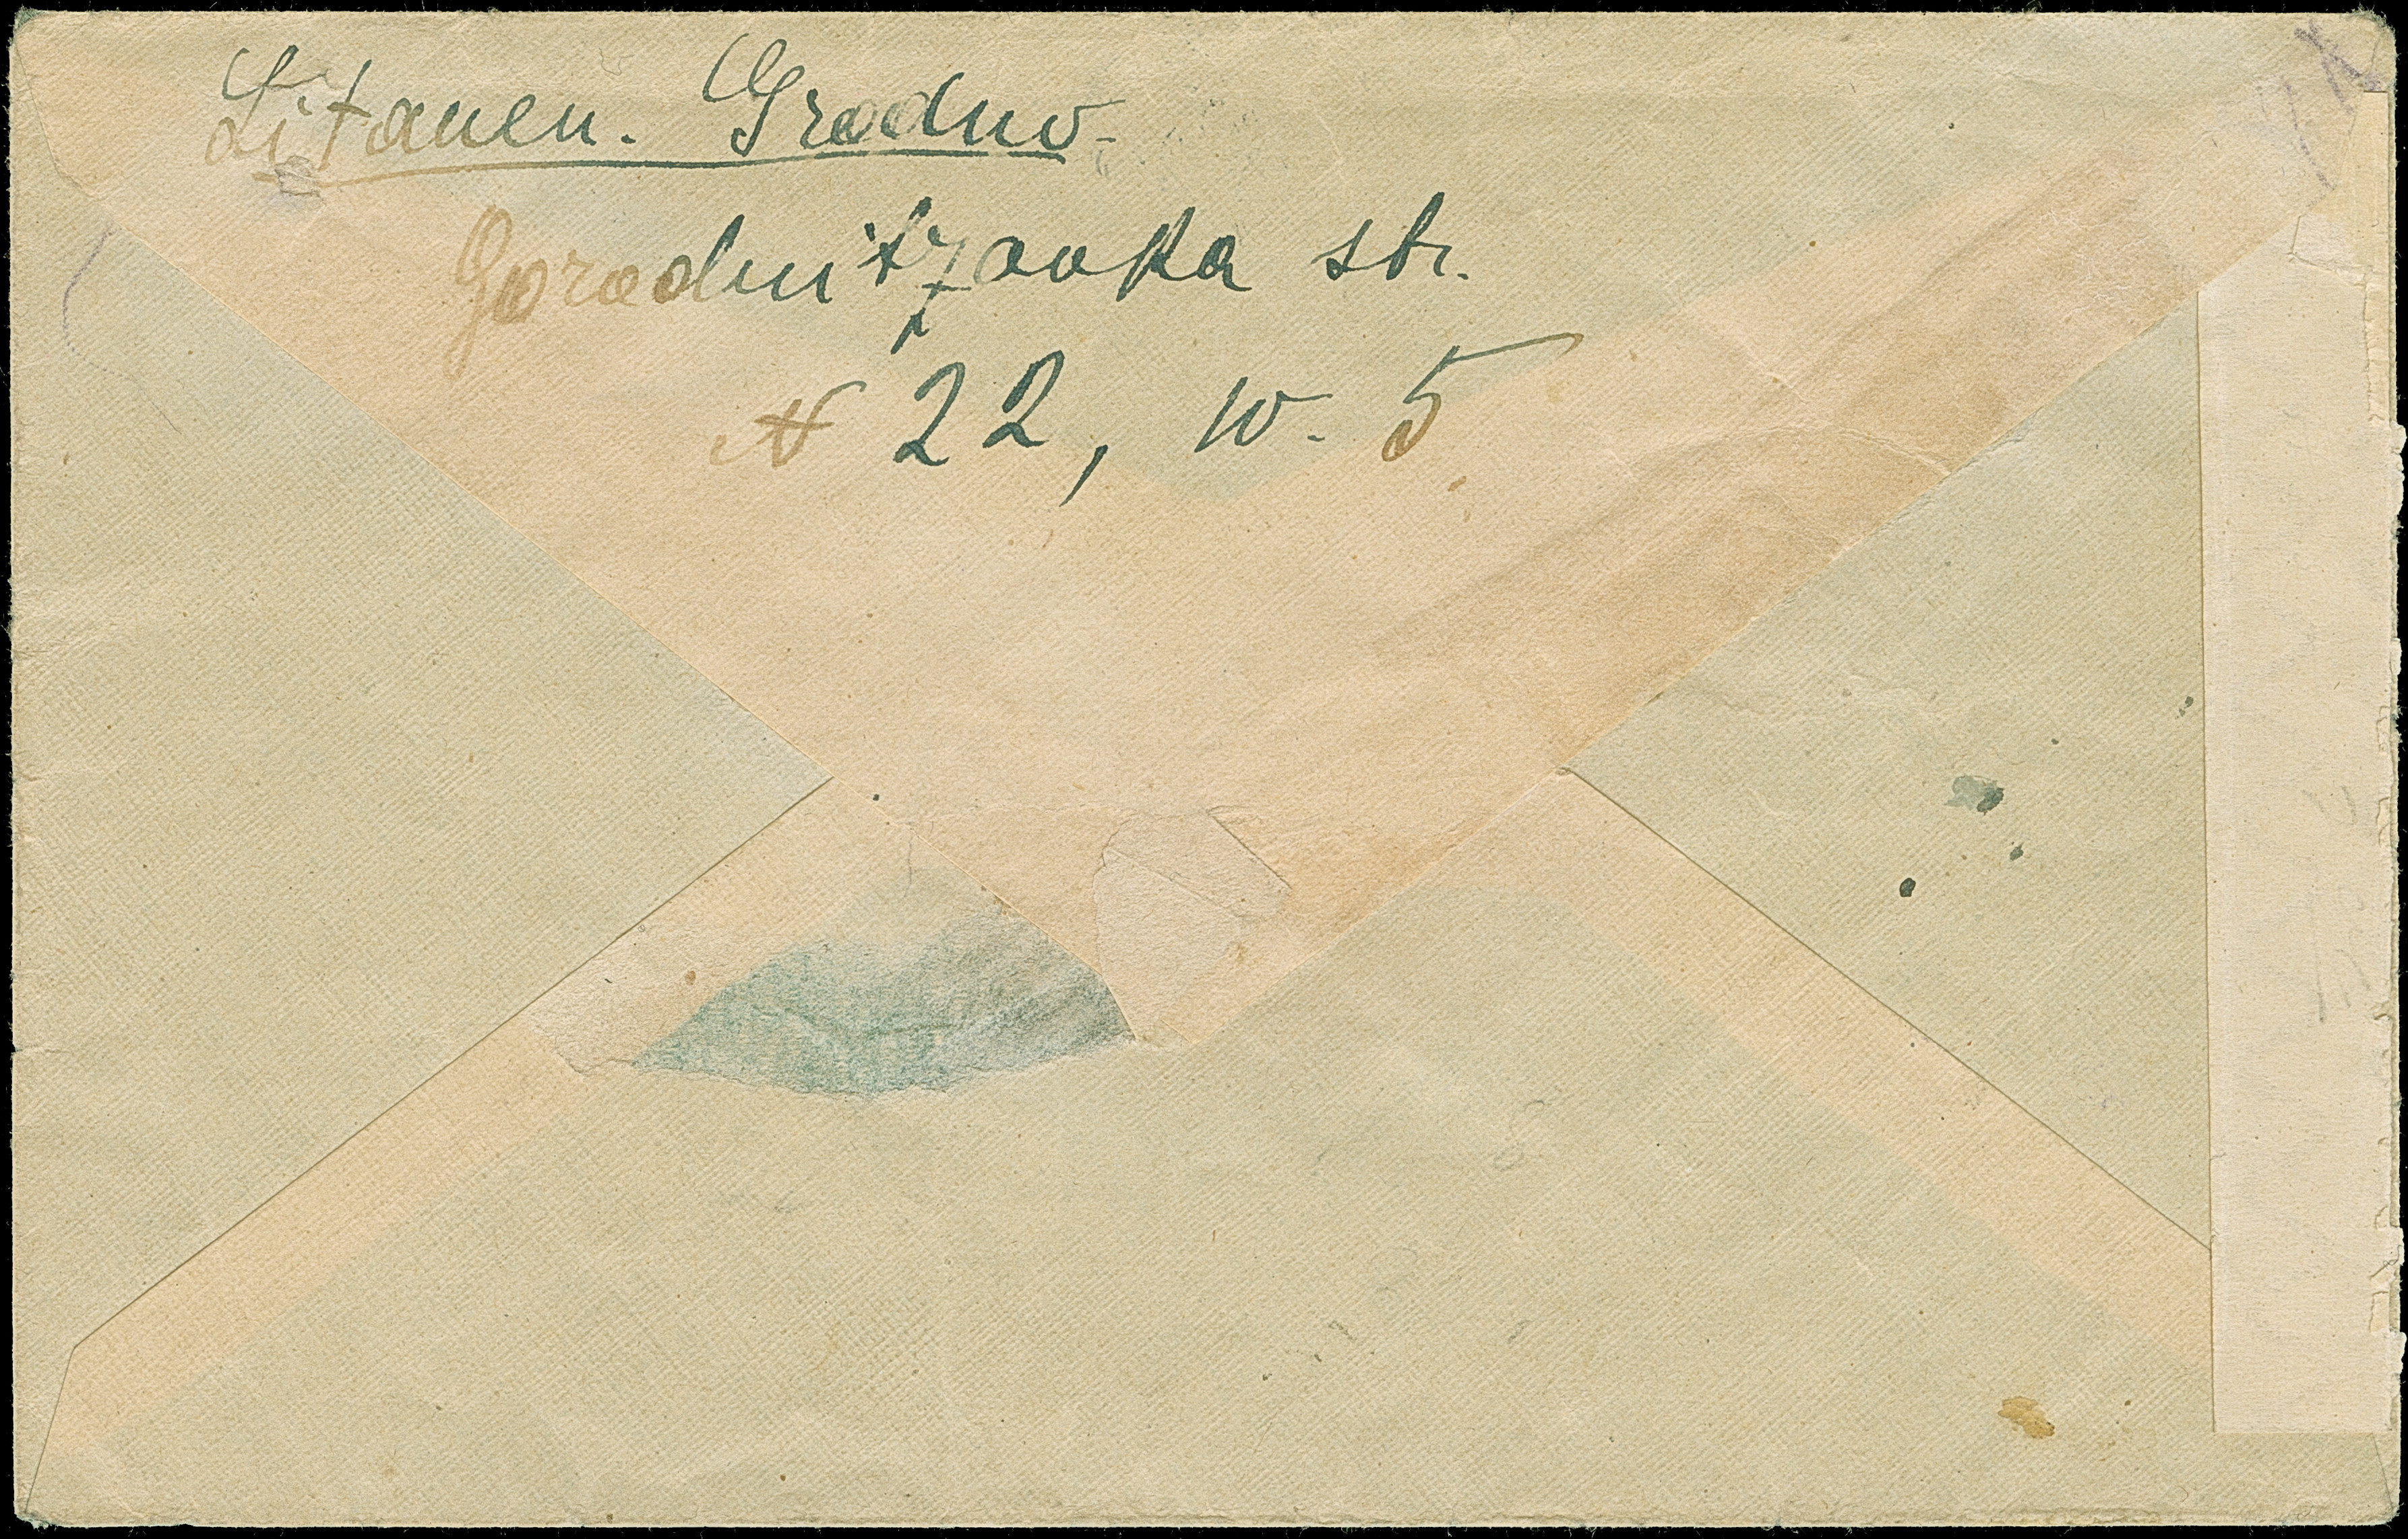 Litauen. Grodno.
Gorodnitzanka str.
N 22, w. 5